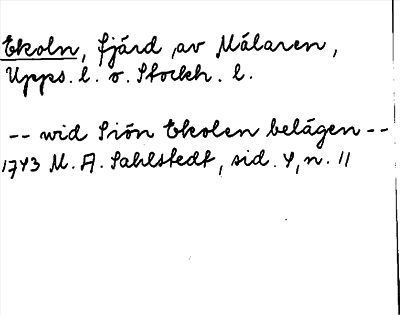 Ekoln, fjärd av Mälaren,
Upps. l. o. Stockh. l.
-- wid Siön Ekolen belägen --
1743 M. A. Sahlstedt, sid. 4, n. 11